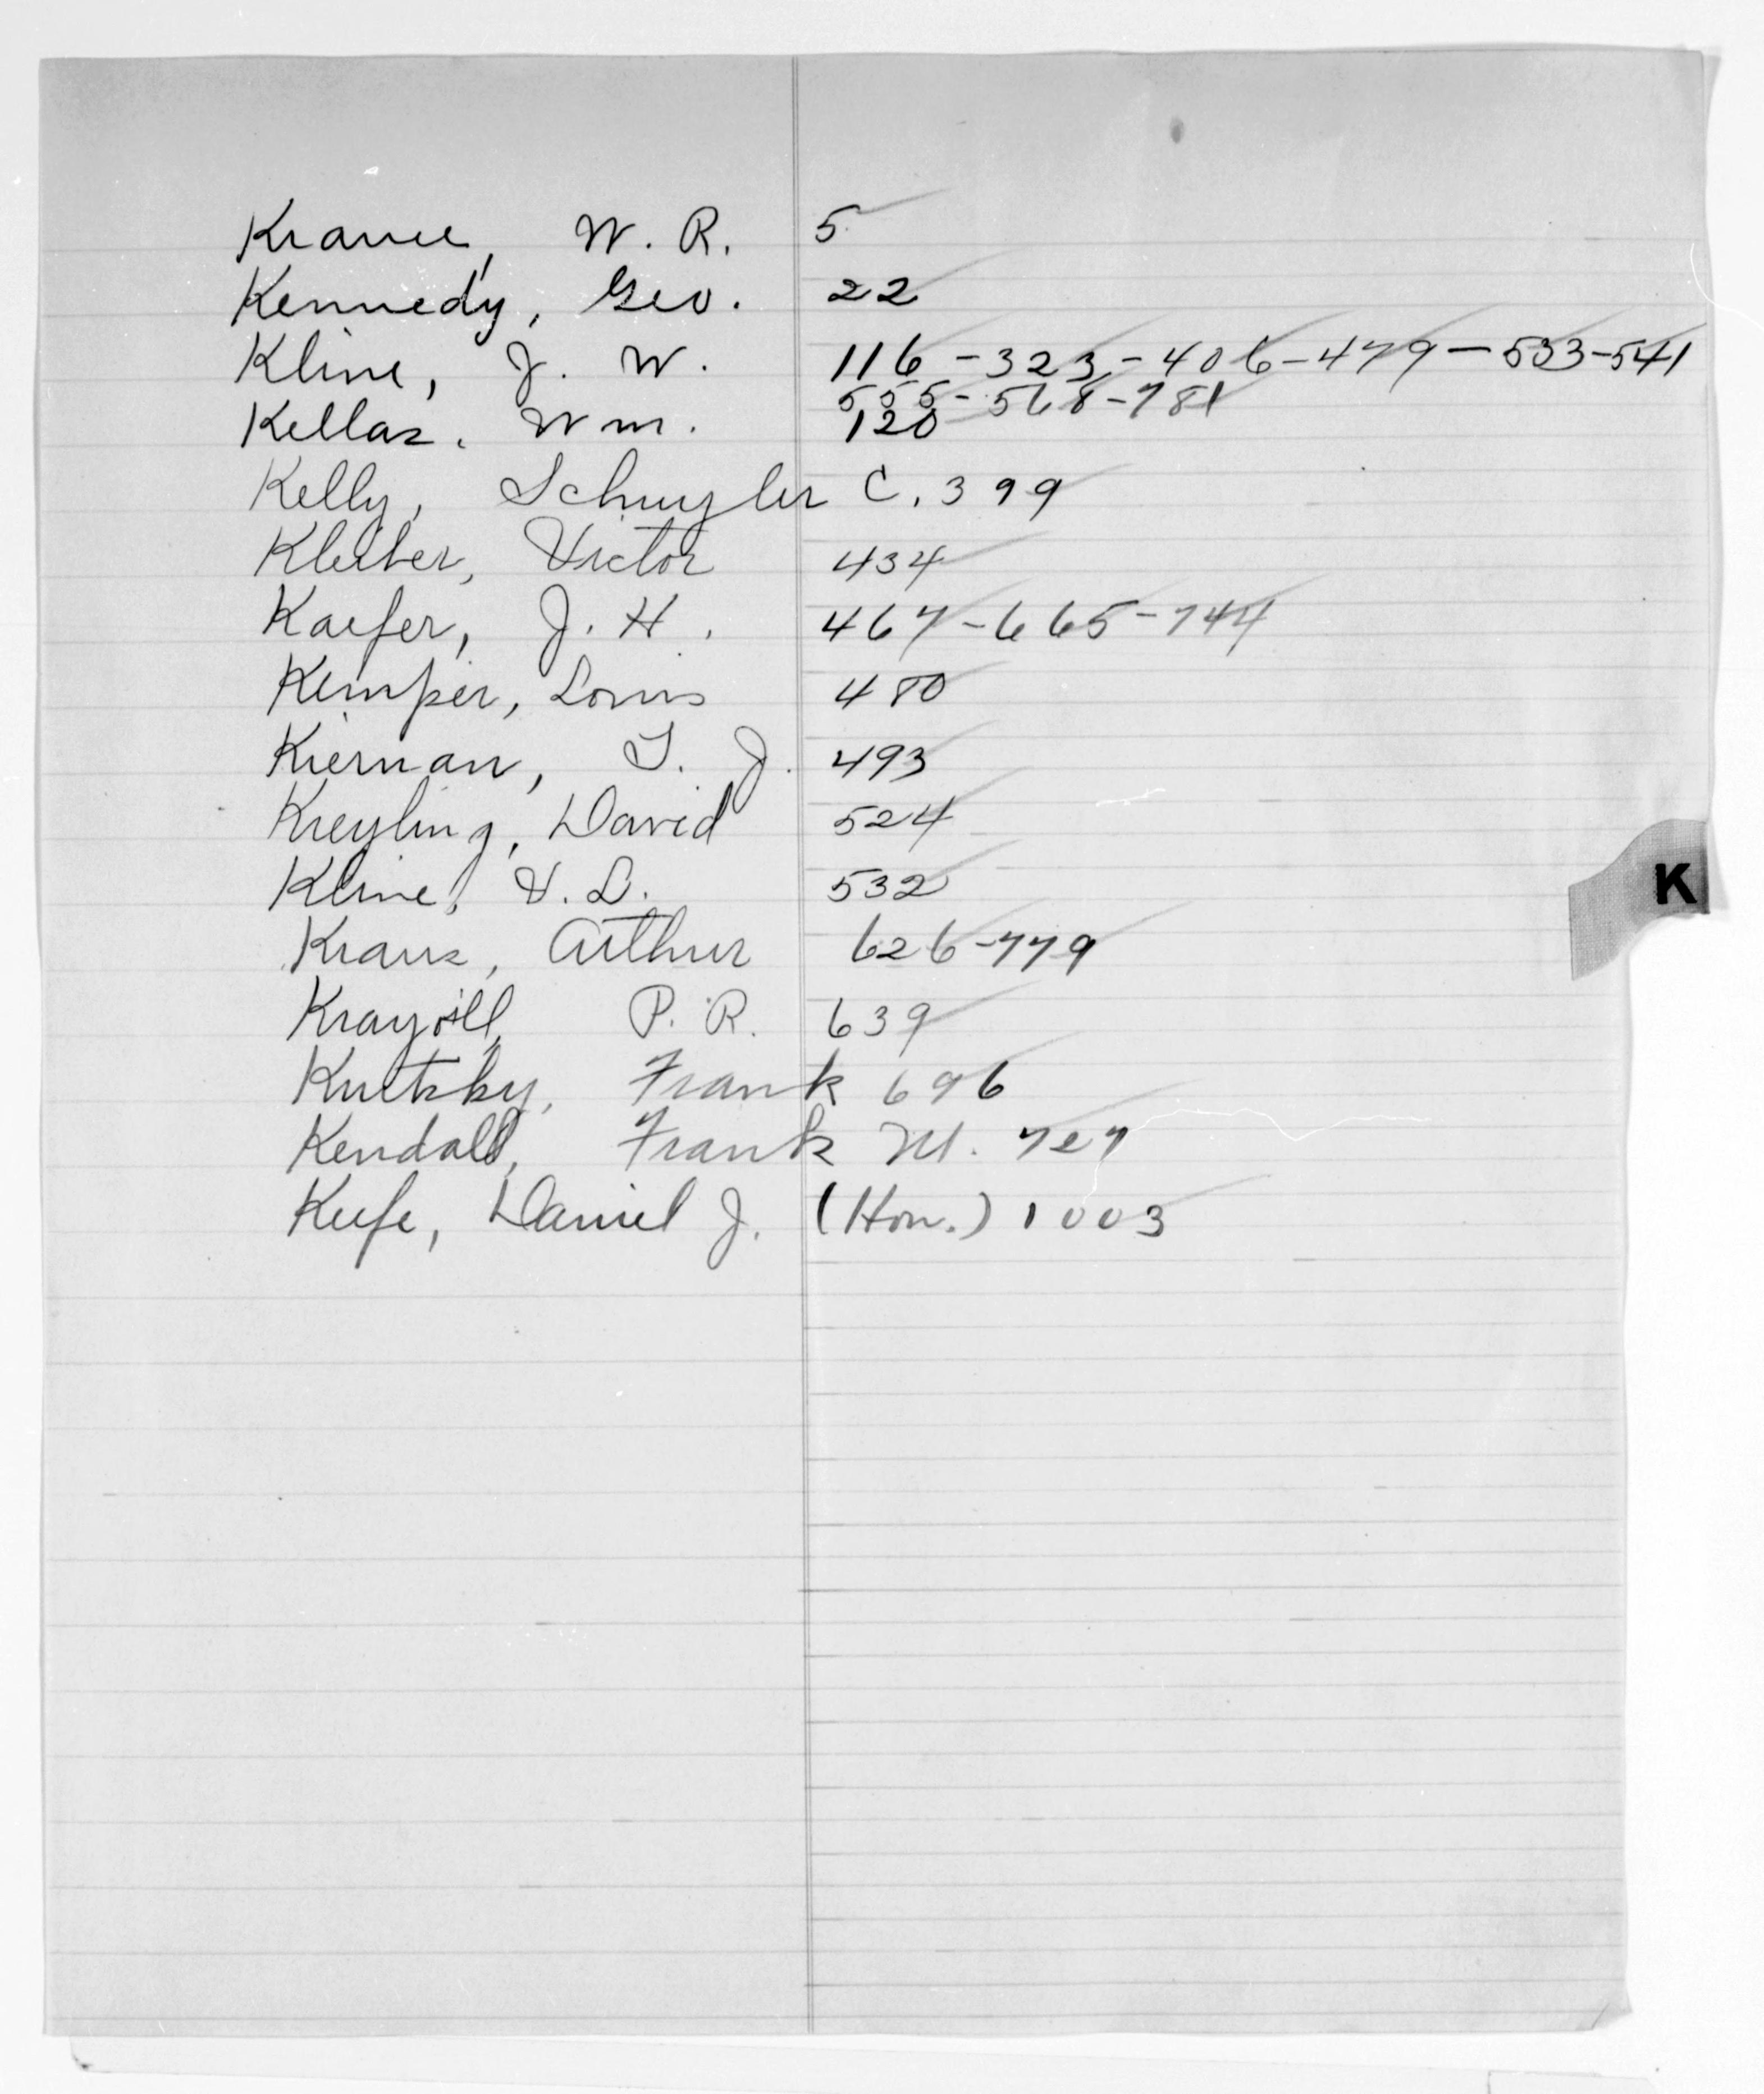 W. R. 5
Kennedy, Geo. 22
Kline, J. W. 116 - 323 - 406 - 479 - 533 - 541
555 - 568 - 781
Kellas, Wm. 120
Kelly, Schuyler C. 399
Kleiber, Victor 434
Kaefer, J. H. 467 - 665 - 744
Kemper, Louis 480
Kiernan, T. J. 493
Kreyling, David 524
Kline, V. L. 532
K
Kraus, Arthur 626 - 779
P. R. 639
Frank 696
Kendall, Frank M. 727
Keefe, Daniel J. (Hon.) 1003